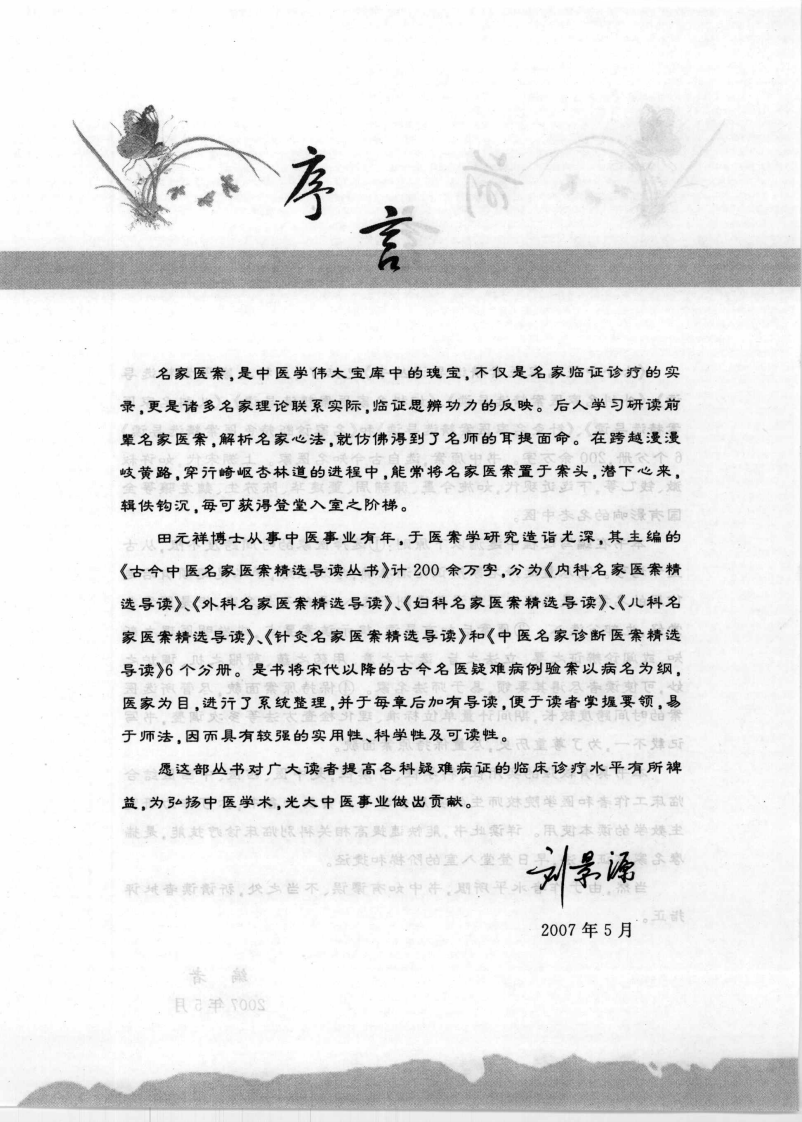 序言
名家医案,是中医学伟大宝库中的瑰宝,不仅是名家临证诊疗的实
录,更是诸多名家理论联系实际,临证思辨功力的反映。后人学习研读前
辈名家医案,解析名家心法,就仿佛得到了名师的耳提面命。在跨越漫漫
岐黄路,穿行崎岖杏林道的进程中,能常将名家医案置于案头,潜下心来,
辑佚钩沉,每可获得登堂入室之阶梯。
田元祥博士从事中医事业有年,于医案学研究造诣尤深,其主编的
《古今中医名家医案精选导读丛书》计 200 余万字,分为《内科名家医案精
选导读》、《外科名家医案精选导读》、《妇科名家医案精选导读》、《儿科名
家医案精选导读》、《针灸名家医案精选导读》和《中医名家诊断医案精选
导读》6 个分册。是书将宋代以降的古今名医疑难病例验案以病名为纲,
医家为目,进行了系统整理,并于每章后加有导读,便于读者掌握要领,易
于师法,因而具有较强的实用性、科学性及可读性。
愿这部丛书对广大读者提高各科疑难病证的临床诊疗水平有所裨
益,为弘扬中医学术,光大中医事业做出贡献。
刘景源
2007 年 5 月